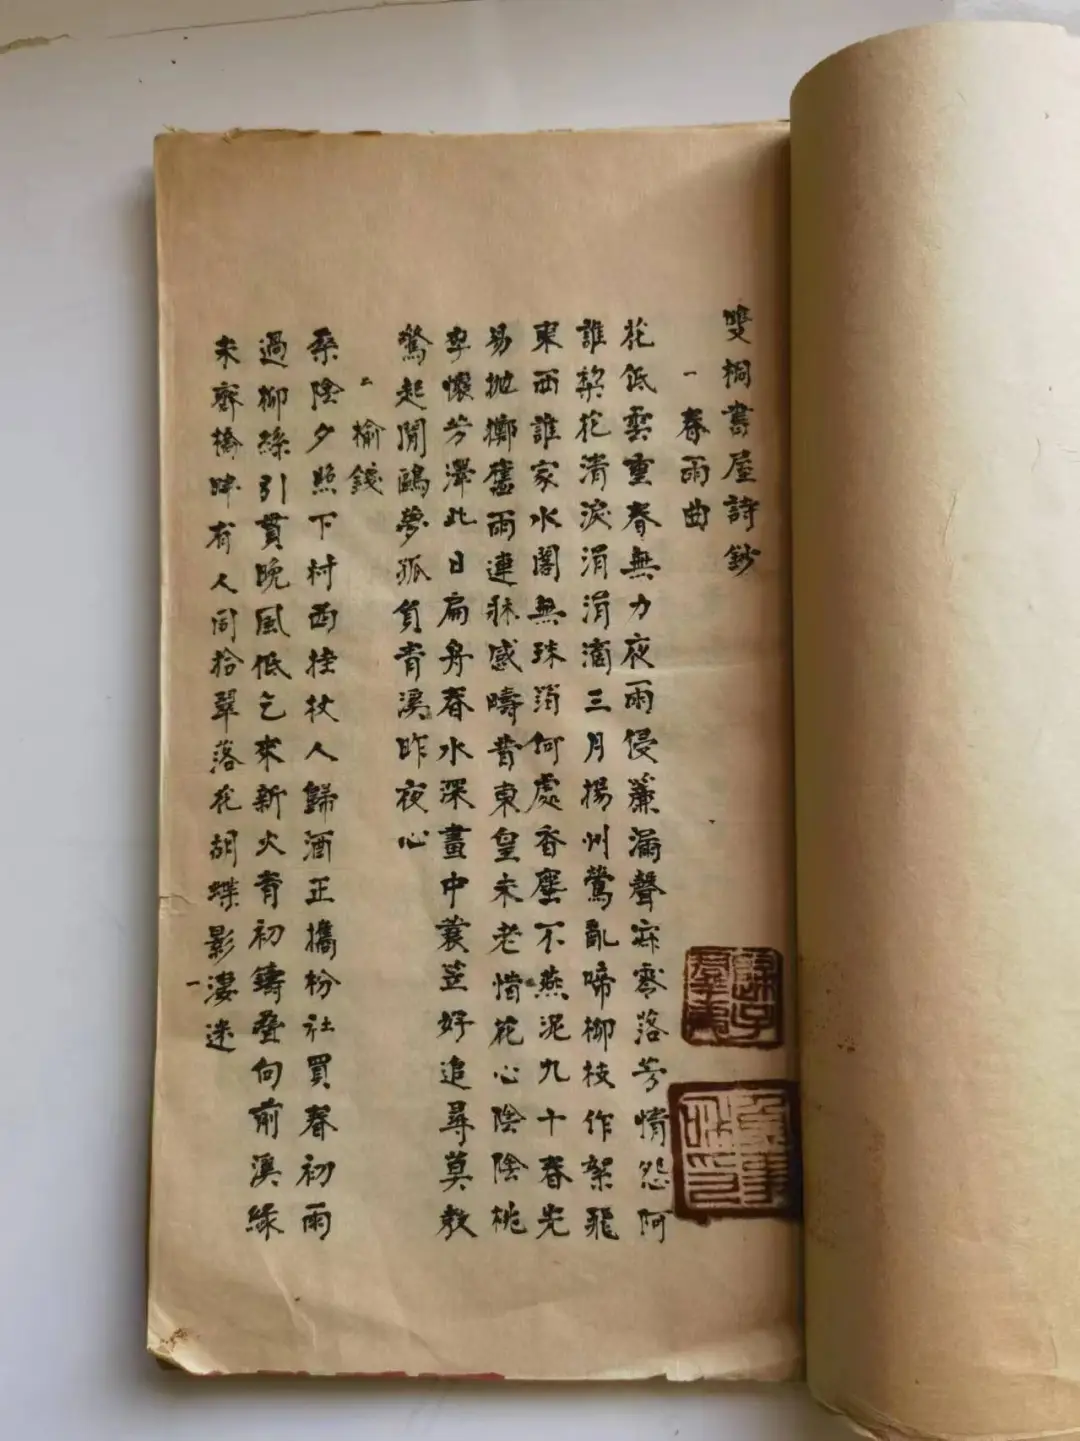 雙桐書屋詩鈔
一 春雨曲
花低雲重春無力夜雨侵簾漏聲寂零落芳情怨阿
誰栔花清淚涓涓滴三月揚州鶯亂啼柳枝作絮飛
東西誰家水閣無珠箔何處香塵不燕泥九十春光
易拋擲舊雨連牀感疇昔東皇未老惜花心陰陰桃
李懷芳澤此日扁舟春水深畫中蓑笠好追尋莫教
驚起閒鷗夢孤負青溪昨夜心
二 榆錢
桑陰夕照下村西拄杖人歸酒正攜枌社買春初雨
過柳絲引貫晚風低乞來新火青初鑄疊向前溪綠
未齊橋畔有人同拾翠落花胡蝶影淒迷
一